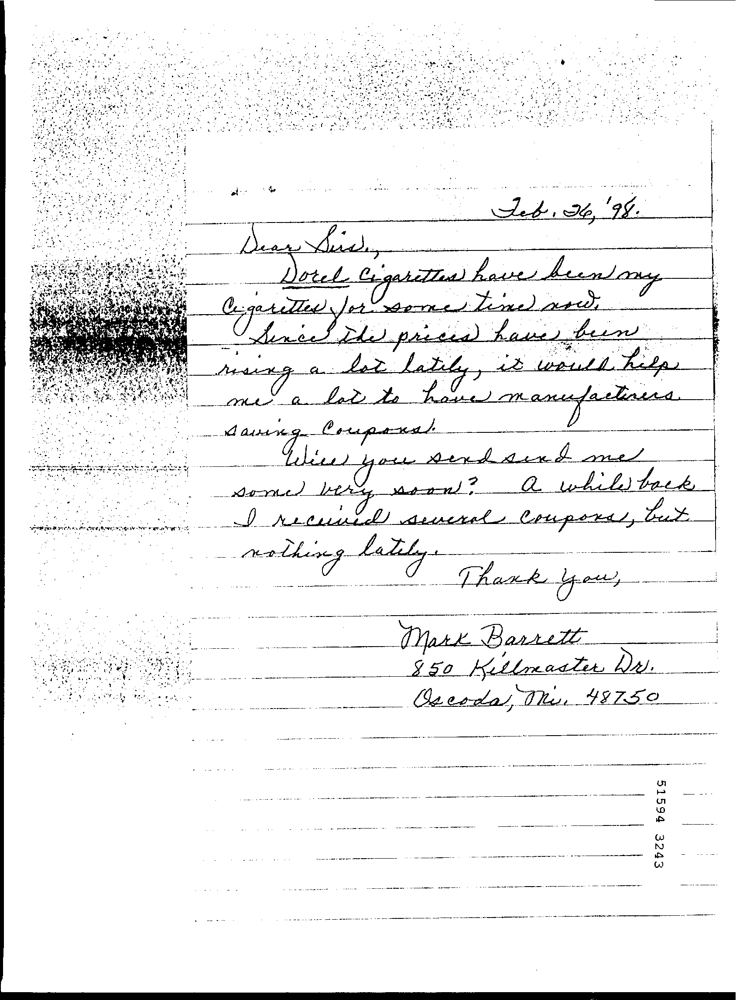 Feb. 26, '98.
Dear Sirs.,
Dorel Cigarettes have been my
Cigarettes for some time now.
Since the prices have been
rising a lot lately, it would help
me a lot to have manufacturers
saving Coupons.
Will you send send me
some very soon? A while back
I received several coupons, but
nothing lately.
Thank You,
Mark Barrett
850 Killmaster Dr.
Oscoda, Mi. 48750
51594 3243